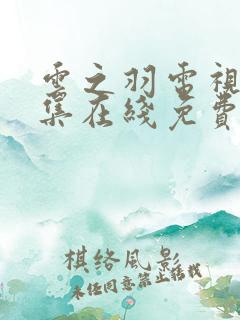 雲之羽電視
集在綫免費
棋络風影
未经同意禁止转载